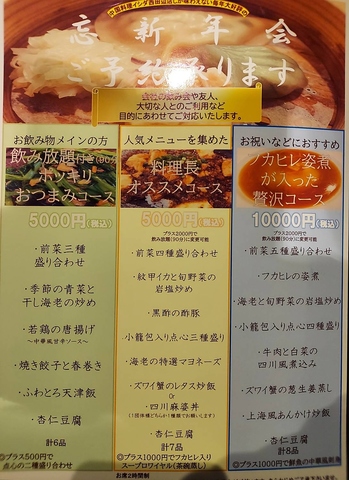 中国料理イシダ西田辺店しか味わえない毎年大好評
忘新年会
ご予約承ります
会社の飲み会や友人、
大切な人とのご利用など
目的にあわせてご対応いたします。
お飲み物メインの方
飲み放題付き(90分)
ポッキリ
おつまみコース
5000円(税込)
・前菜三種
盛り合わせ
・季節の青菜と
干し海老の炒め
・若鶏の唐揚げ
〜中華風甘辛ソース〜
・焼き餃子と春巻き
・ふわとろ天津飯
・杏仁豆腐
計6品
◎プラス500円で
点心の二種盛り合わせ
人気メニューを集めた
料理長
オススメコース
5000円(税込)
プラス2000円で
飲み放題(90分)に変更可能
・前菜四種盛り合わせ
・紋甲イカと旬野菜の
岩塩炒め
・黒酢の酢豚
・小籠包入り点心三種盛り
・海老の特選マヨネーズ
・ズワイ蟹のレタス炒飯
Or
・四川麻婆丼
(1団体様どちらか1種類でお願いします)
・杏仁豆腐
計7品
◎プラス1000円でフカヒレ入り
スープロワイヤル(茶碗蒸し)
お席2時間制
お祝いなどにおすすめ
フカヒレ姿煮
が入った
贅沢コース
10000円(税込)
プラス2000円で
飲み放題(90分)に変更可能
・前菜五種盛り合わせ
・フカヒレの姿煮
・海老と旬野菜の岩塩炒め
・小籠包入り点心四種盛り
・牛肉と白菜の
四川風煮込み
・ズワイ蟹の葱生姜蒸し
・上海風あんかけ炒飯
・杏仁豆腐
計8品
◎プラス1000円で鮮魚の中華風刺身